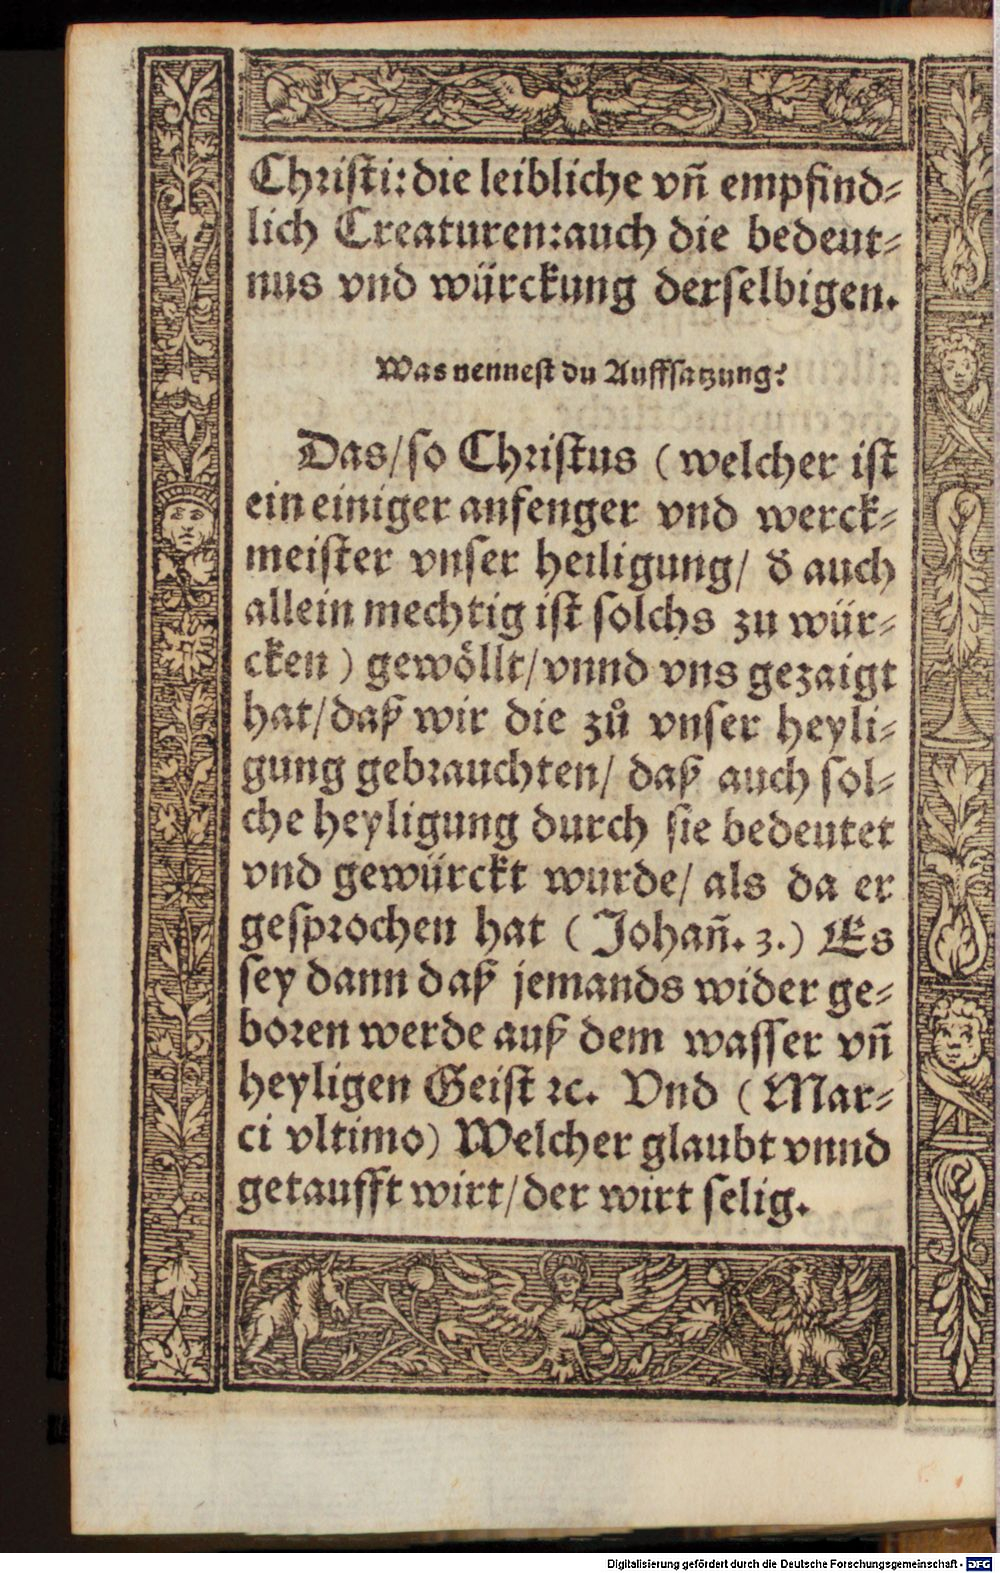 Christi: die leibliche vñ empfind⸗
lich Creaturen: auch die bedeut⸗
nus vnd würckung derselbigen.
Was nennest du Auffsatzung?
Das/ so Christus ( welcher ist
ein einiger anfenger vnd werck⸗
meister vnser heiligung/ d̕ auch
allein mechtig ist solchs zu wür⸗
cken ) gewöllt/ vnnd vns gezaigt
hat/ daß wir die zů vnser heyli⸗
gung gebrauchten/ daß auch sol⸗
che heyligung durch sie bedeutet
vnd gewürckt wurde/ als da er
gesprochen hat ( Johañ. 3.) Es
sey dann daß jemands wider ge⸗
boren werde auß dem wasser vñ
heyligen Geist ꝛc. Vnd ( Mar⸗
ci vltimo) Welcher glaubt vnnd
getaufft wirt/ der wirt selig.
Digitalisierung gefördert durch die Deutsche Forschungsgemeinschaft - DFG